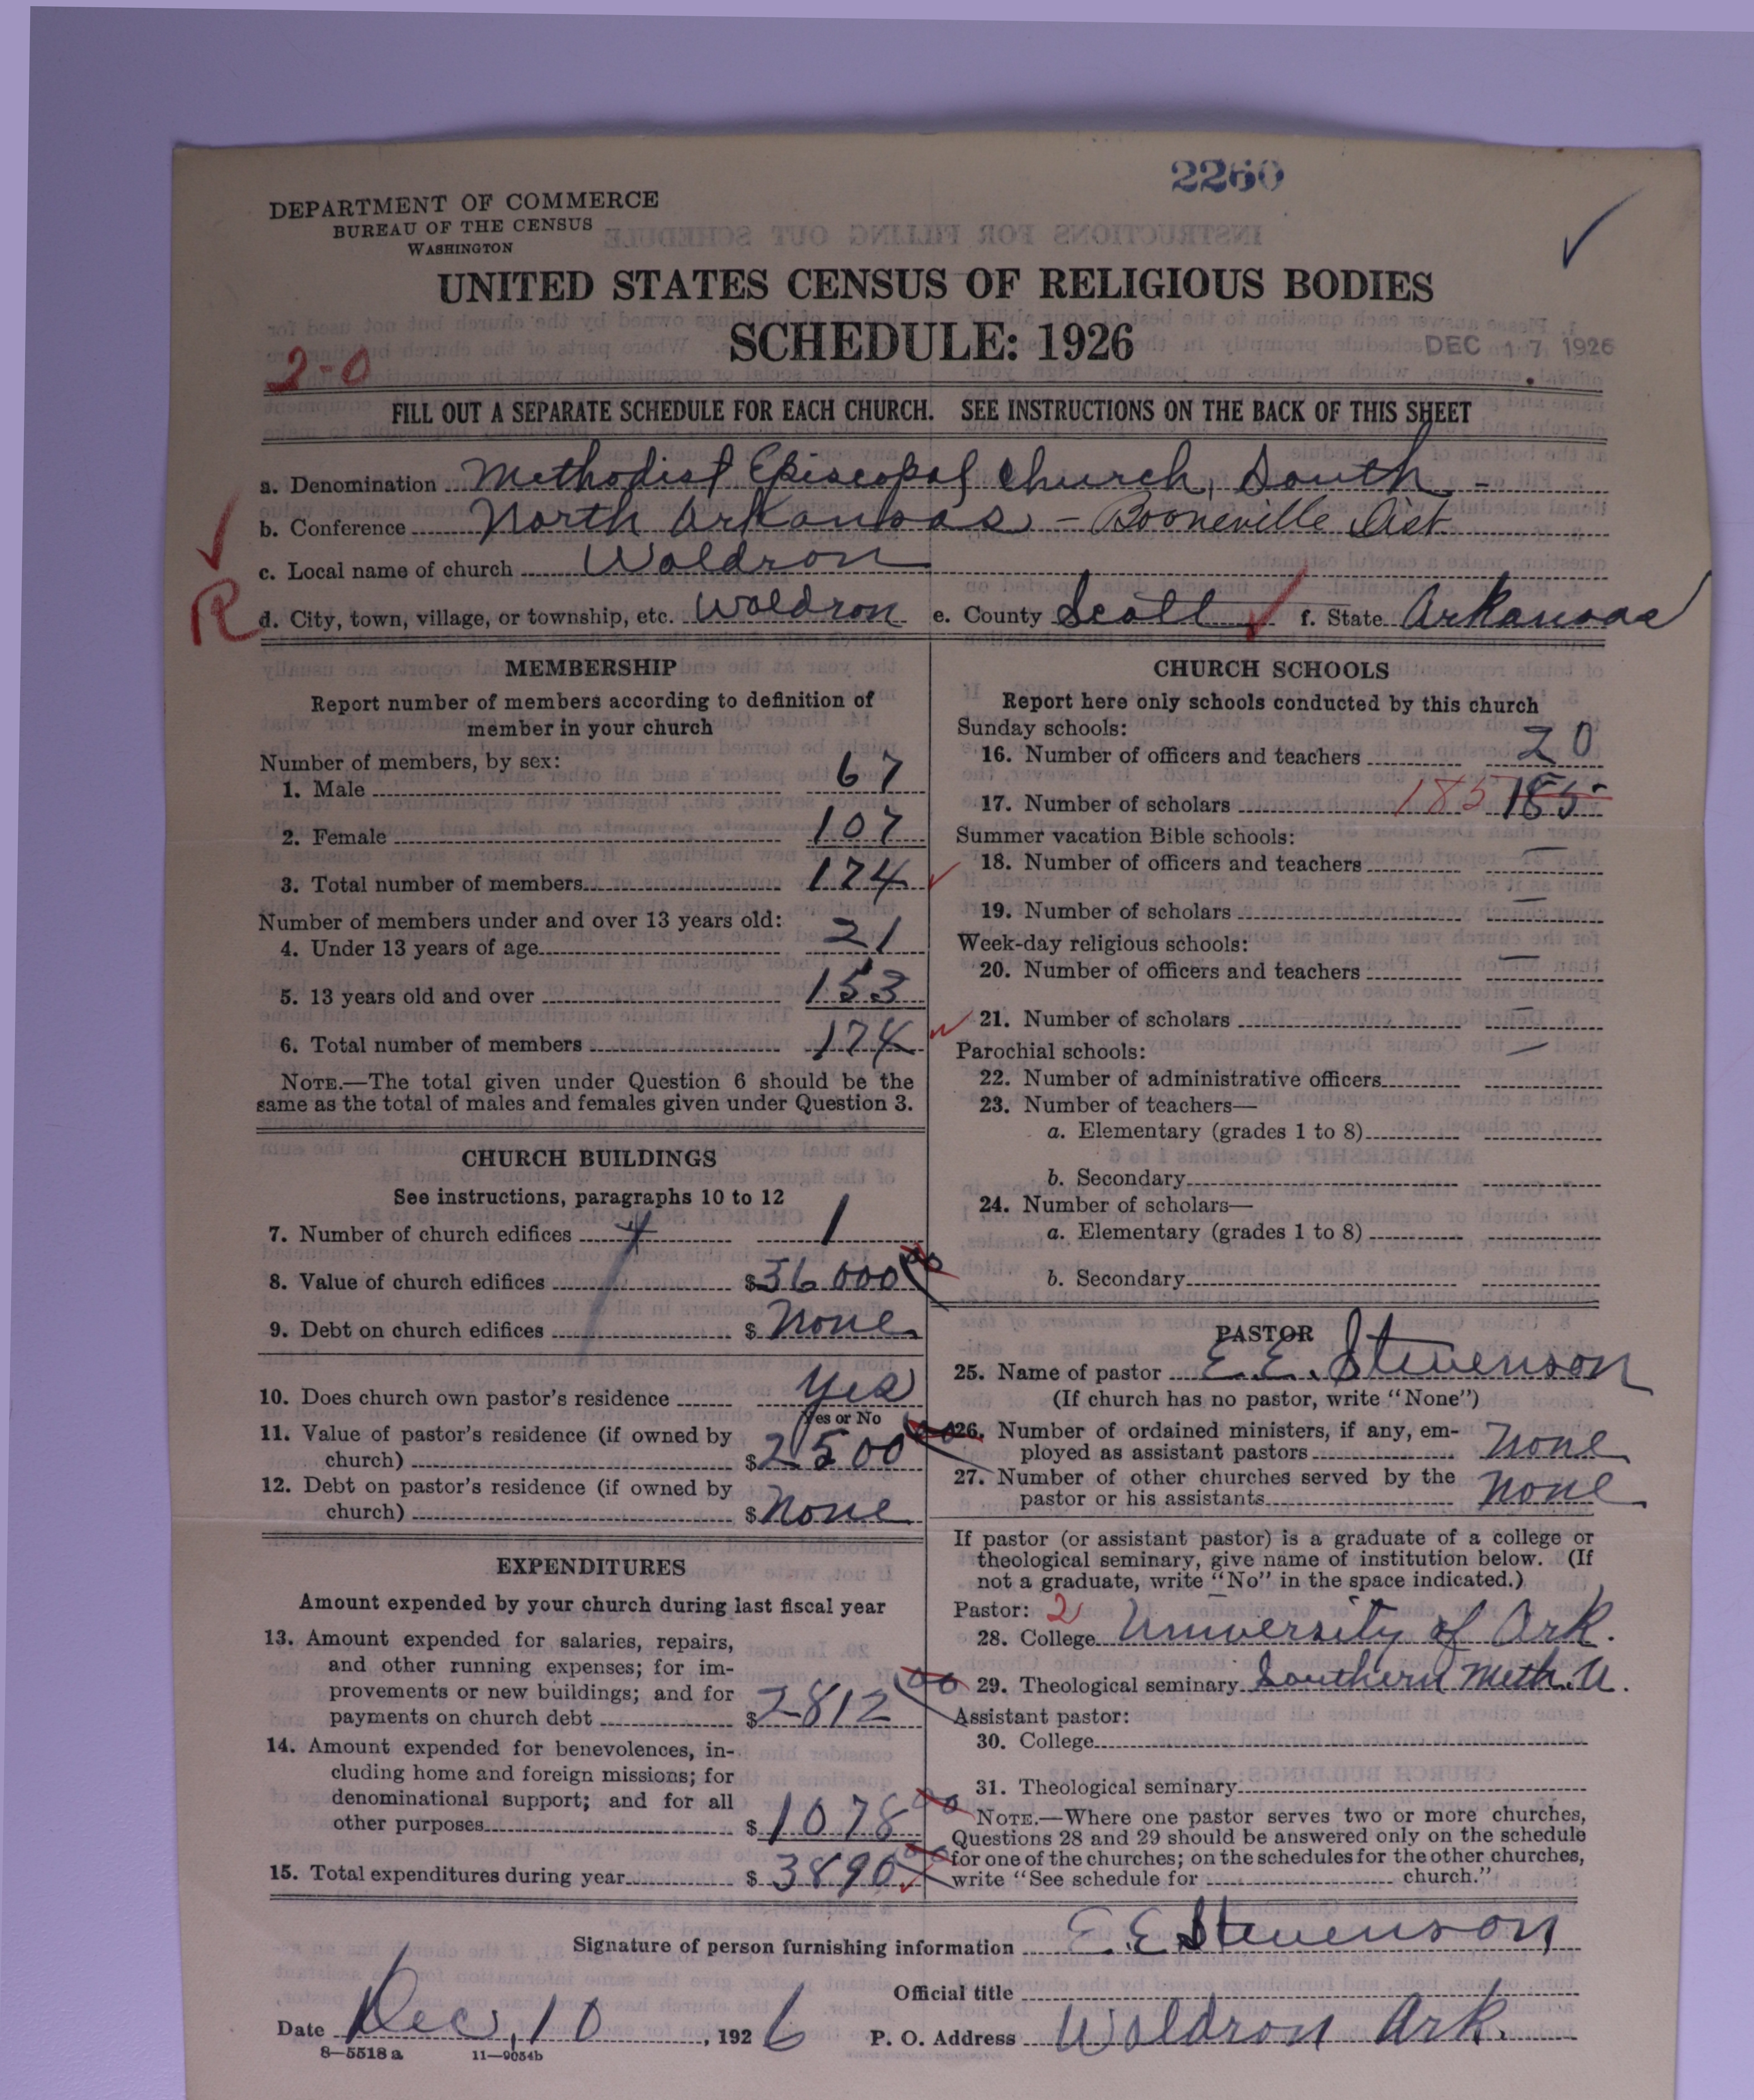 2260
DEPARTMENT OF COMMERCE
BUREAU OF THE CENSUS
WASHINGTON
UNITED STATES CENSUS OF RELIGIOUS BODIES
SCHEDULE: 1926
DEC 17 1926
2-0
FILL OUT A SEPARATE SCHEDULE FOR EACH CHURCH. SEE INSTRUCTIONS ON THE BACK OF THIS SHEET
a. Denomination Methodist Episcopal Church, South -
b. Conference North Arkansas - Booneville Dist
c. Local name of church Waldron
R
d. City, town, village, or township, etc. Waldron e. County Scott f. State Arkansas
MEMBERSHIP
Report number of members according to definition of
member in your church
Number of members, by sex:
1. Male 67
2. Female 107
3. Total number of members 174
Number of members under and over 13 years old:
4. Under 13 years of age 21
5. 13 years old and over 153
6. Total number of members 174
NOTE.—The total given under Question 6 should be the
same as the total of males and females given under Question 3.
CHURCH BUILDINGS
See instructions, paragraphs 10 to 12
7. Number of church edifices 1
8. Value of church edifices $36000 00
9. Debt on church edifices $ None
10. Does church own pastor's residence Yes
Yes or No
11. Value of pastor's residence (if owned by
church) $2500
12. Debt on pastor's residence (if owned by
church) $ None
EXPENDITURES
Amount expended by your church during last fiscal year
13. Amount expended for salaries, repairs,
and other running expenses; for im-
provements or new buildings; and for
payments on church debt $2812 00
14. Amount expended for benevolences, in-
cluding home and foreign missions; for
denominational support; and for all
other purposes $1078 00
15. Total expenditures during year $3890 00
CHURCH SCHOOLS
Report here only schools conducted by this church
Sunday schools:
16. Number of officers and teachers 20
17. Number of scholars 185 185
Summer vacation Bible schools:
18. Number of officers and teachers —
19. Number of scholars —
Week-day religious schools:
20. Number of officers and teachers —
21. Number of scholars —
Parochial schools: —
22. Number of administrative officers
23. Number of teachers—
a. Elementary (grades 1 to 8)
b. Secondary
24. Number of scholars—
a. Elementary (grades 1 to 8)
b. Secondary
PASTOR
25. Name of pastor E. E. Stevenson
(If church has no pastor, write "None")
26. Number of ordained ministers, if any, em-
ployed as assistant pastors None
27. Number of other churches served by the
pastor or his assistants None
If pastor (or assistant pastor) is a graduate of a college or
theological seminary, give name of institution below. (If
not a graduate, write "No" in the space indicated.)
Pastor: 2
28. College University of Ark.
29. Theological seminary Southern Meth. U.
Assistant pastor:
30. College
31. Theological seminary
NOTE.—Where one pastor serves two or more churches,
Questions 28 and 29 should be answered only on the schedule
for one of the churches; on the schedules for the other churches,
write "See schedule for church."
Signature of person furnishing information E. E Stevenson
Official title
Date Dec, 10, 1926 P. O. Address Waldron Ark.
8—5518 a 11—9054b